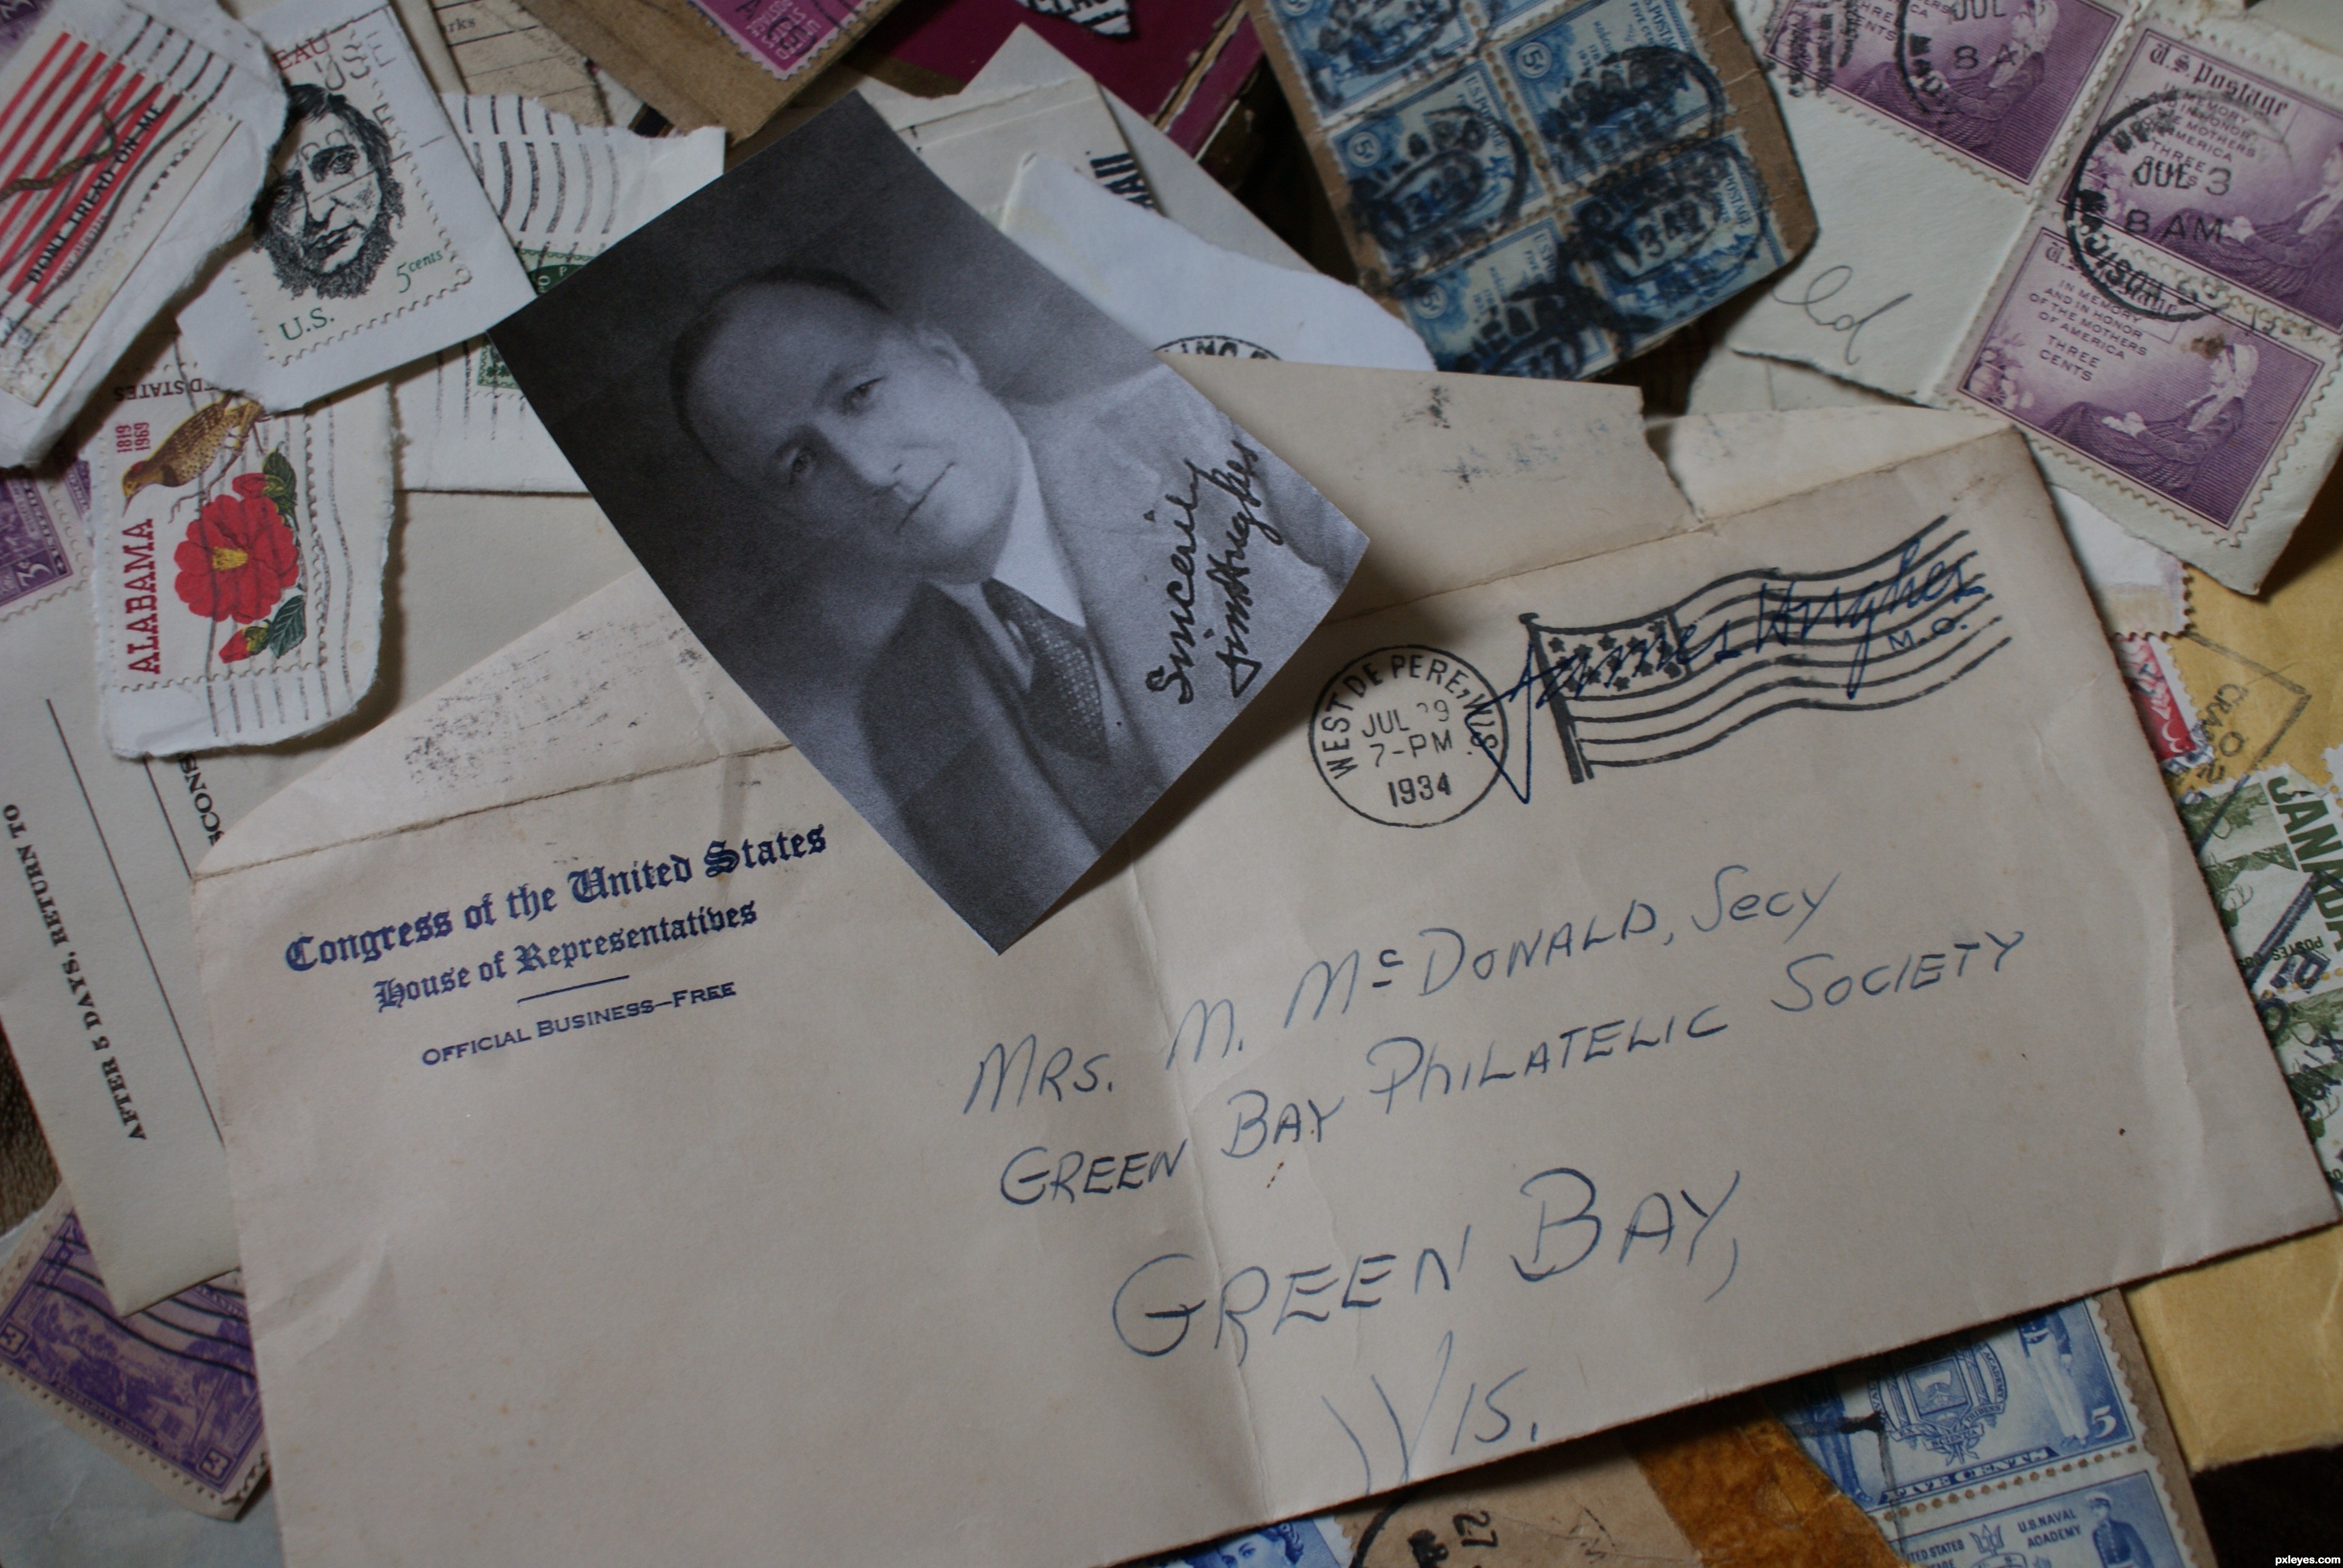 DONT TREAD ON ME
EAU
U.S.
5 cents
rks
ALABAMA
1819
1969
ED STATES
AFTER 5 DAYS, RETURN TO
Sincerily
Jim Hughes
Congress of the United States
House of Representatives
OFFICIAL BUSINESS—FREE
WEST DE PERE, WIS.
JUL 29
7-PM
1934
James Hughes
M.C.
MRS. M. McDONALD, Secy
GREEN BAY PHILATELIC SOCIETY
GREEN BAY,
WIS.
JUL
8 A
U.S. Postage
IN MEMORY
AND IN HONOR
OF THE MOTHERS
OF AMERICA
THREE
CENTS
JUL 3
8 AM
IN MEMORY
AND IN HONOR
OF THE MOTHERS
OF AMERICA
THREE
CENTS
CANADA
POSTES
5
FIVE CENTS
U.S. NAVAL
ACADEMY
27
3
3
pxleyes.com